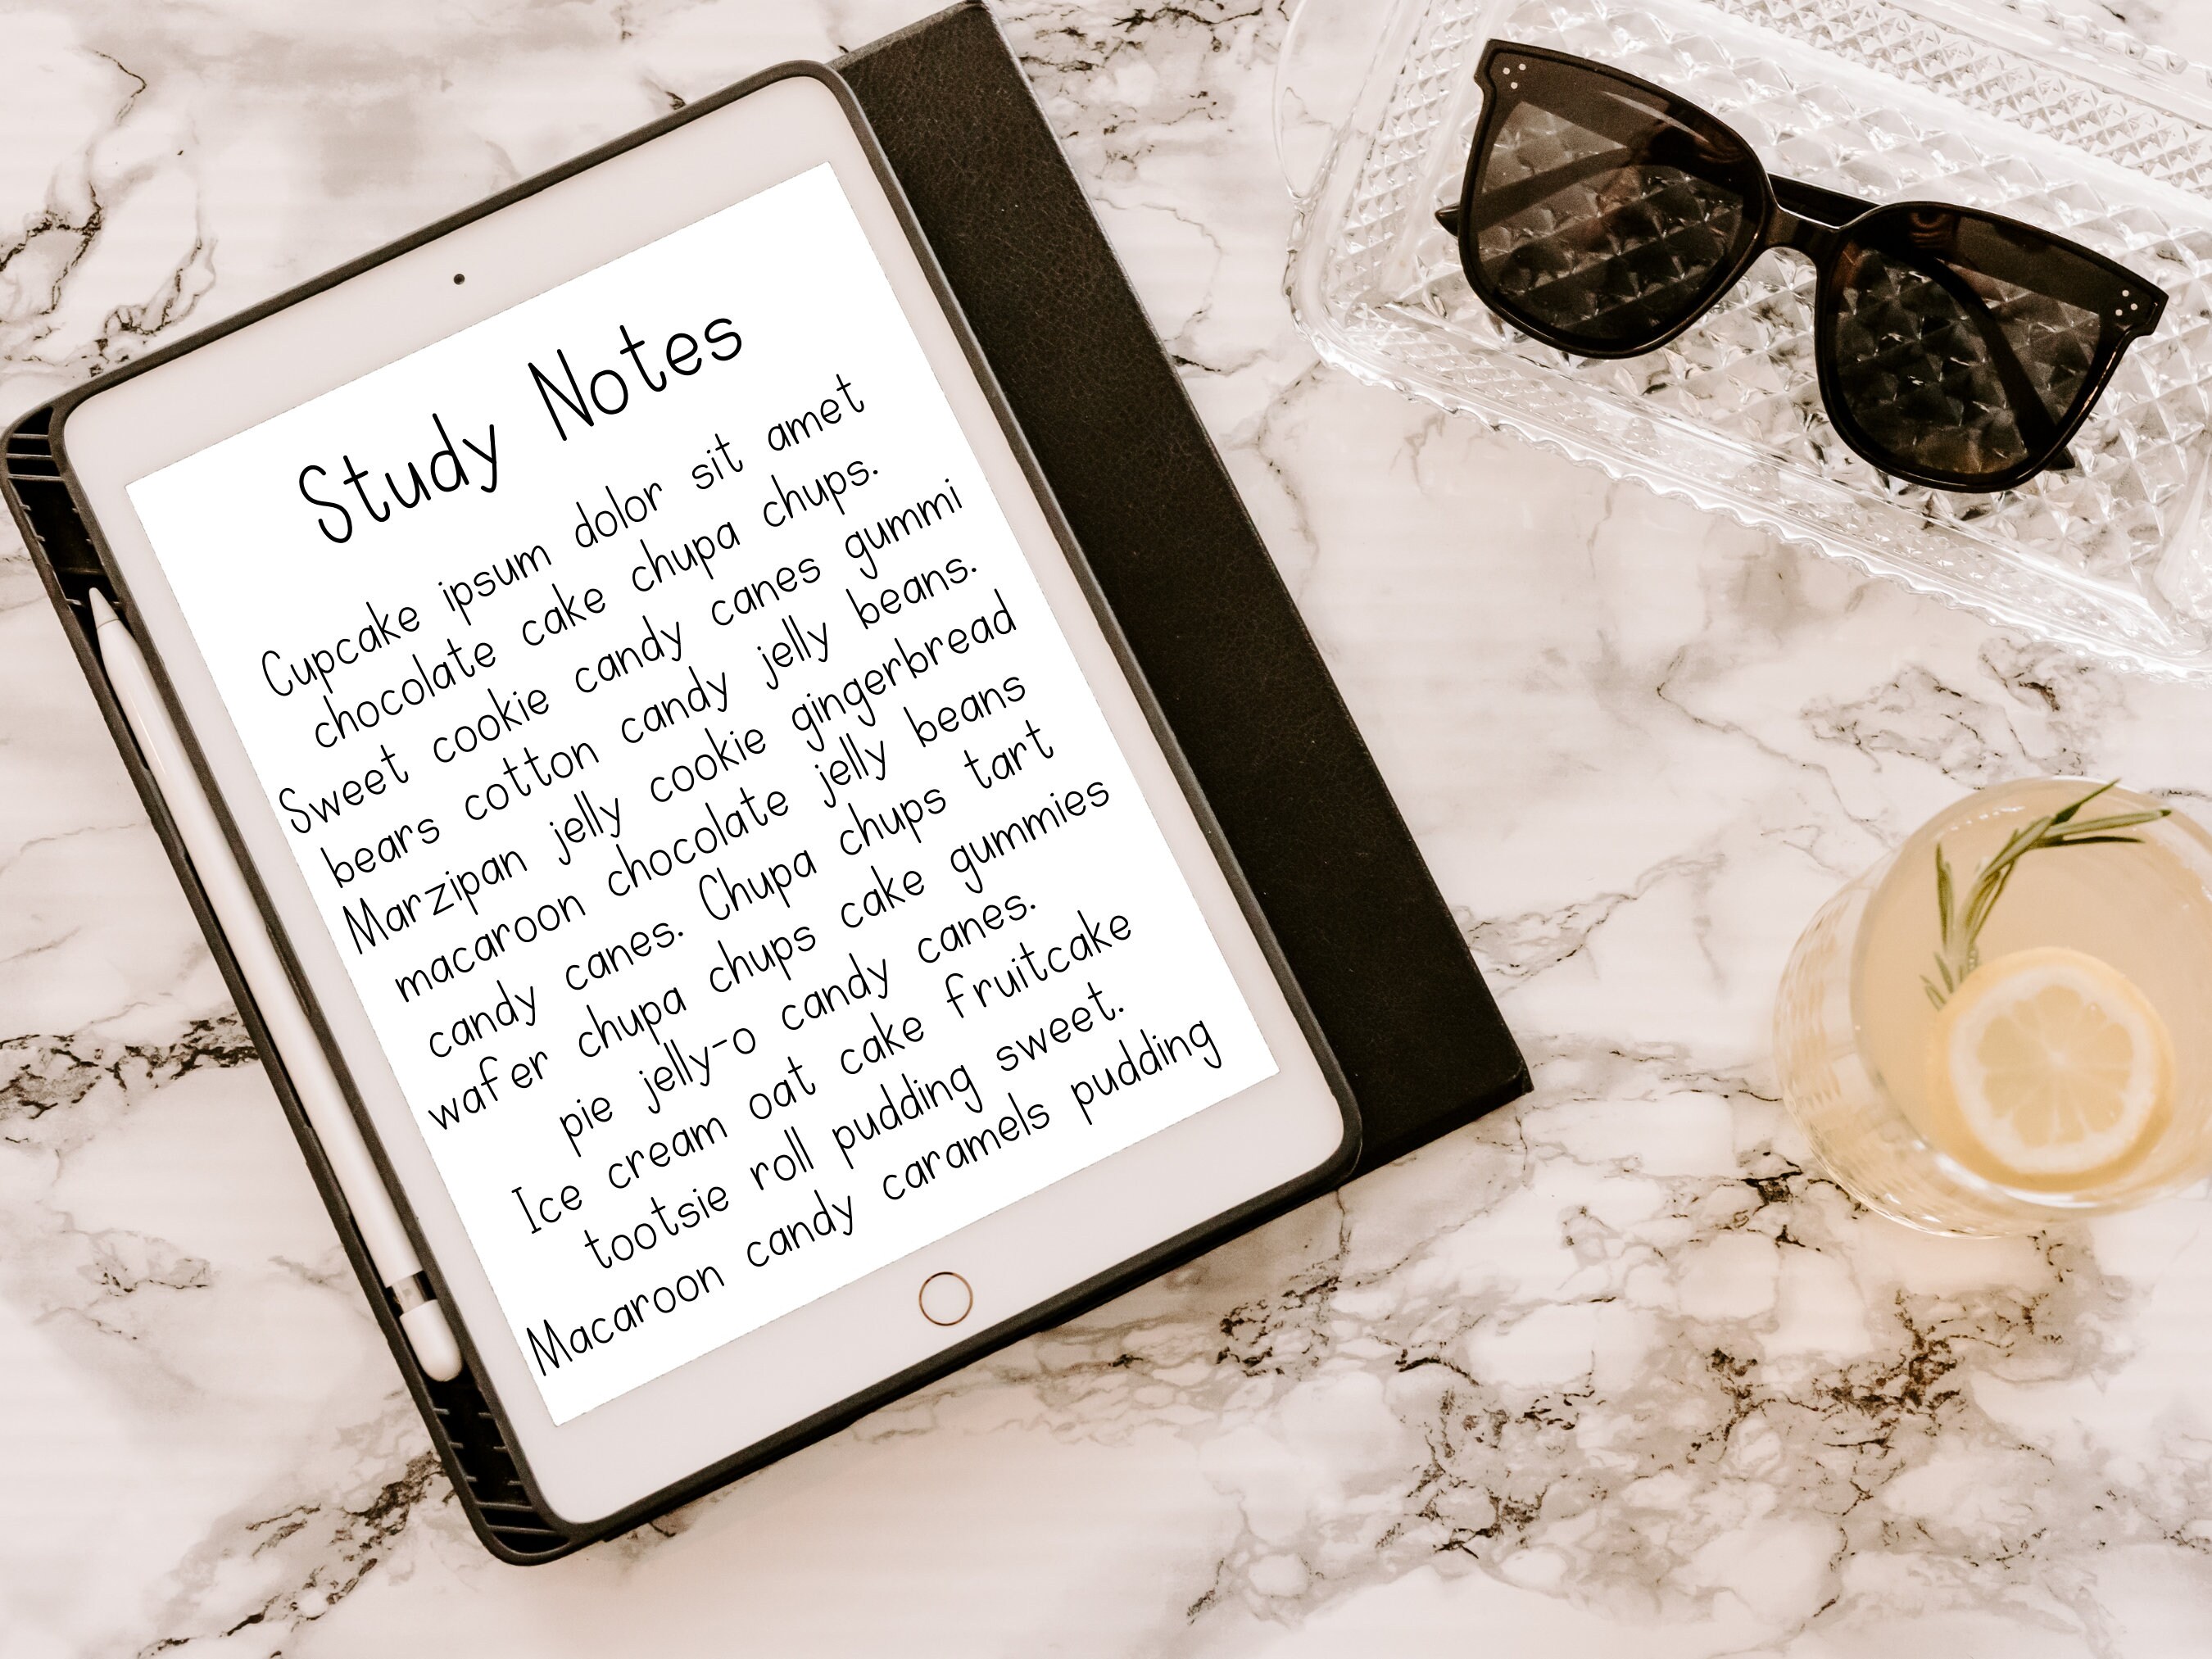 Study Notes
Cupcake ipsum dolor sit amet
chocolate cake chupa chups.
Sweet cookie candy canes gummi
bears cotton candy jelly beans.
Marzipan jelly cookie gingerbread
macaroon chocolate jelly beans
candy canes. Chupa chups tart
wafer chupa chups cake gummies
pie jelly-o candy canes.
Ice cream oat cake fruitcake
tootsie roll pudding sweet.
Macaroon candy caramels pudding